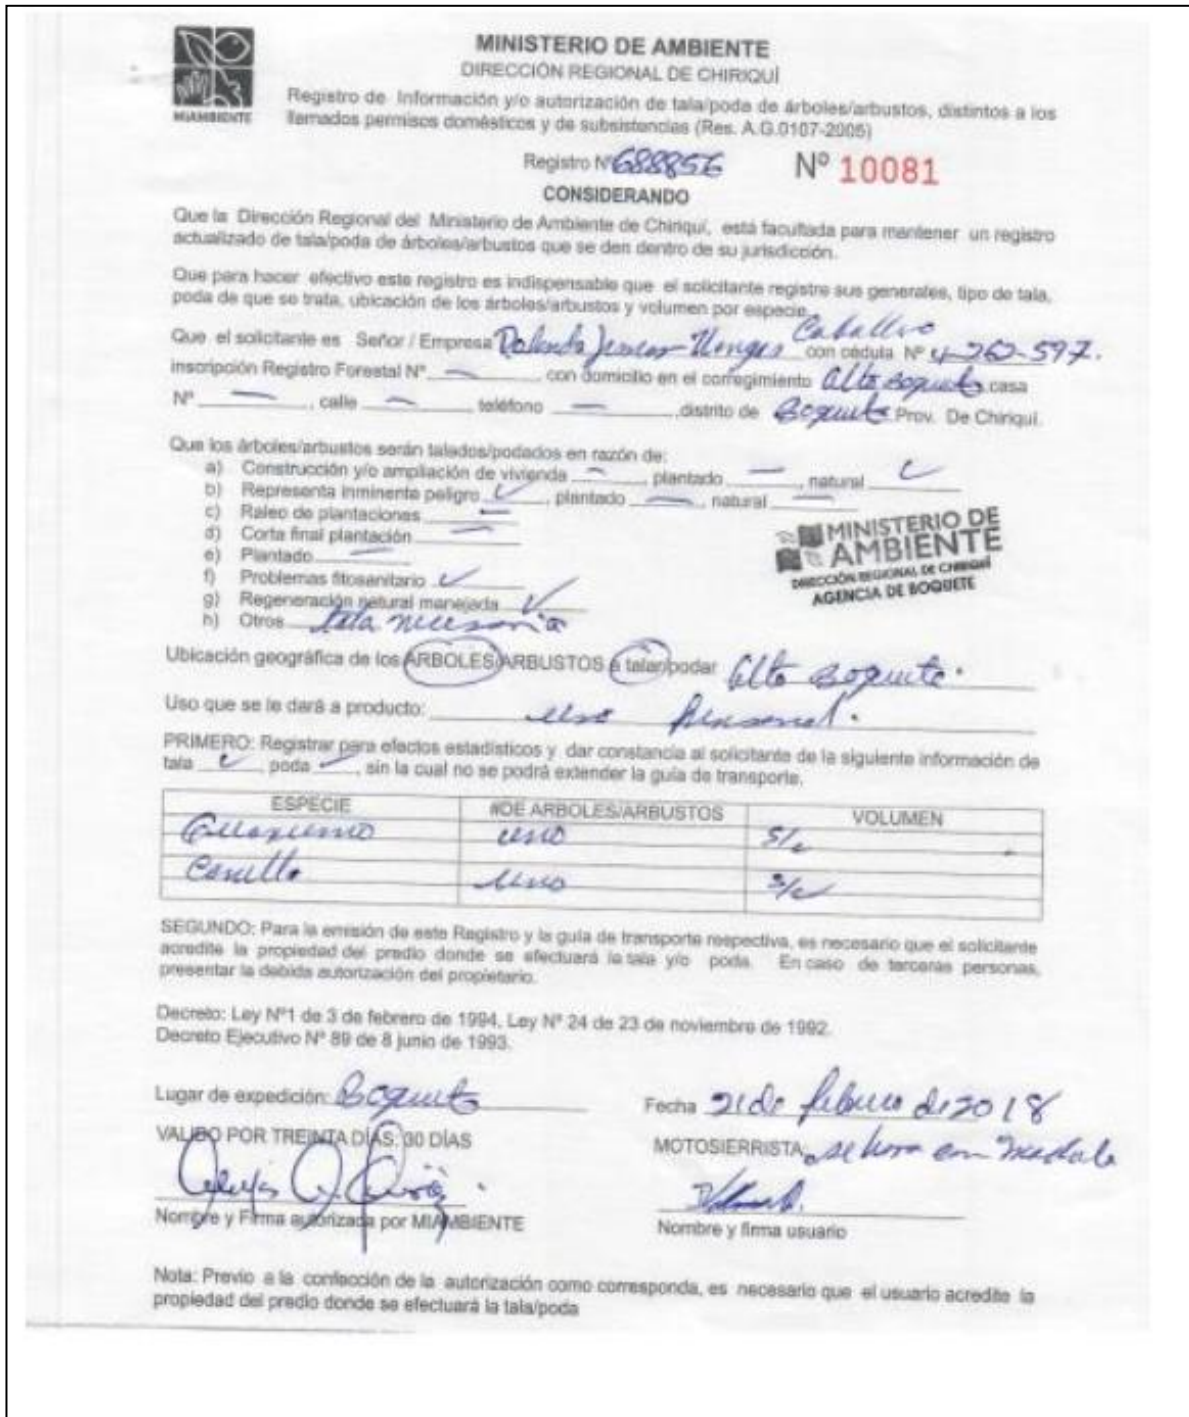 MIAMBIENTE
MINISTERIO DE AMBIENTE
DIRECCIÓN REGIONAL DE CHIRIQUÍ
Registro de Información y/o autorización de tala/poda de árboles/arbustos, distintos a los
llamados permisos domésticos y de subsistencias (Res. A.G.0107-2005)
Registro Nº 688856 Nº 10081
CONSIDERANDO
Que la Dirección Regional del Ministerio de Ambiente de Chiriquí, está facultada para mantener un registro
actualizado de tala/poda de árboles/arbustos que se den dentro de su jurisdicción.
Que para hacer efectivo este registro es indispensable que el solicitante registre sus generales, tipo de tala,
poda de que se trata, ubicación de los árboles/arbustos y volumen por especie.
Caballero
Que el solicitante es Señor / Empresa con cédula Nº 4-262-597.
inscripción Registro Forestal Nº. — , con domicilio en el corregimiento Alto Boquete casa
Nº — , calle — , teléfono — , distrito de Boquete Prov. De Chiriquí.
Que los árboles/arbustos serán talados/podados en razón de:
a) Construcción y/o ampliación de vivienda — , plantado — , natural ✓
b) Representa inminente peligro ✓ , plantado — , natural —
c) Raleo de plantaciones —
d) Corta final plantación —
e) Plantado —
f) Problemas fitosanitario ✓
g) Regeneración natural manejada ✓
h) Otros tala necesaria
MINISTERIO DE
AMBIENTE
DIRECCIÓN REGIONAL DE CHIRIQUÍ
AGENCIA DE BOQUETE
Ubicación geográfica de los ÁRBOLES/ARBUSTOS a talar/podar Alto Boquete.
Uso que se le dará a producto: uso personal.
PRIMERO: Registrar para efectos estadísticos y dar constancia al solicitante de la siguiente información de
tala ✓ poda , sin la cual no se podrá extender la guía de transporte.
ESPECIE #DE ARBOLES/ARBUSTOS VOLUMEN
uno S/c
uno S/c
SEGUNDO: Para la emisión de este Registro y la guía de transporte respectiva, es necesario que el solicitante
acredite la propiedad del predio donde se efectuará la tala y/o poda. En caso de terceras personas,
presentar la debida autorización del propietario.
Decreto: Ley Nº1 de 3 de febrero de 1994, Ley Nº 24 de 23 de noviembre de 1992.
Decreto Ejecutivo Nº 89 de 8 junio de 1993.
Lugar de expedición: Boquete Fecha 21 de febrero de 2018
VALIDO POR TREINTA DÍAS: 30 DÍAS MOTOSIERRISTA:
Nombre y Firma autorizada por MIAMBIENTE Nombre y firma usuario
Nota: Previo a la confección de la autorización como corresponda, es necesario que el usuario acredite la
propiedad del predio donde se efectuará la tala/poda